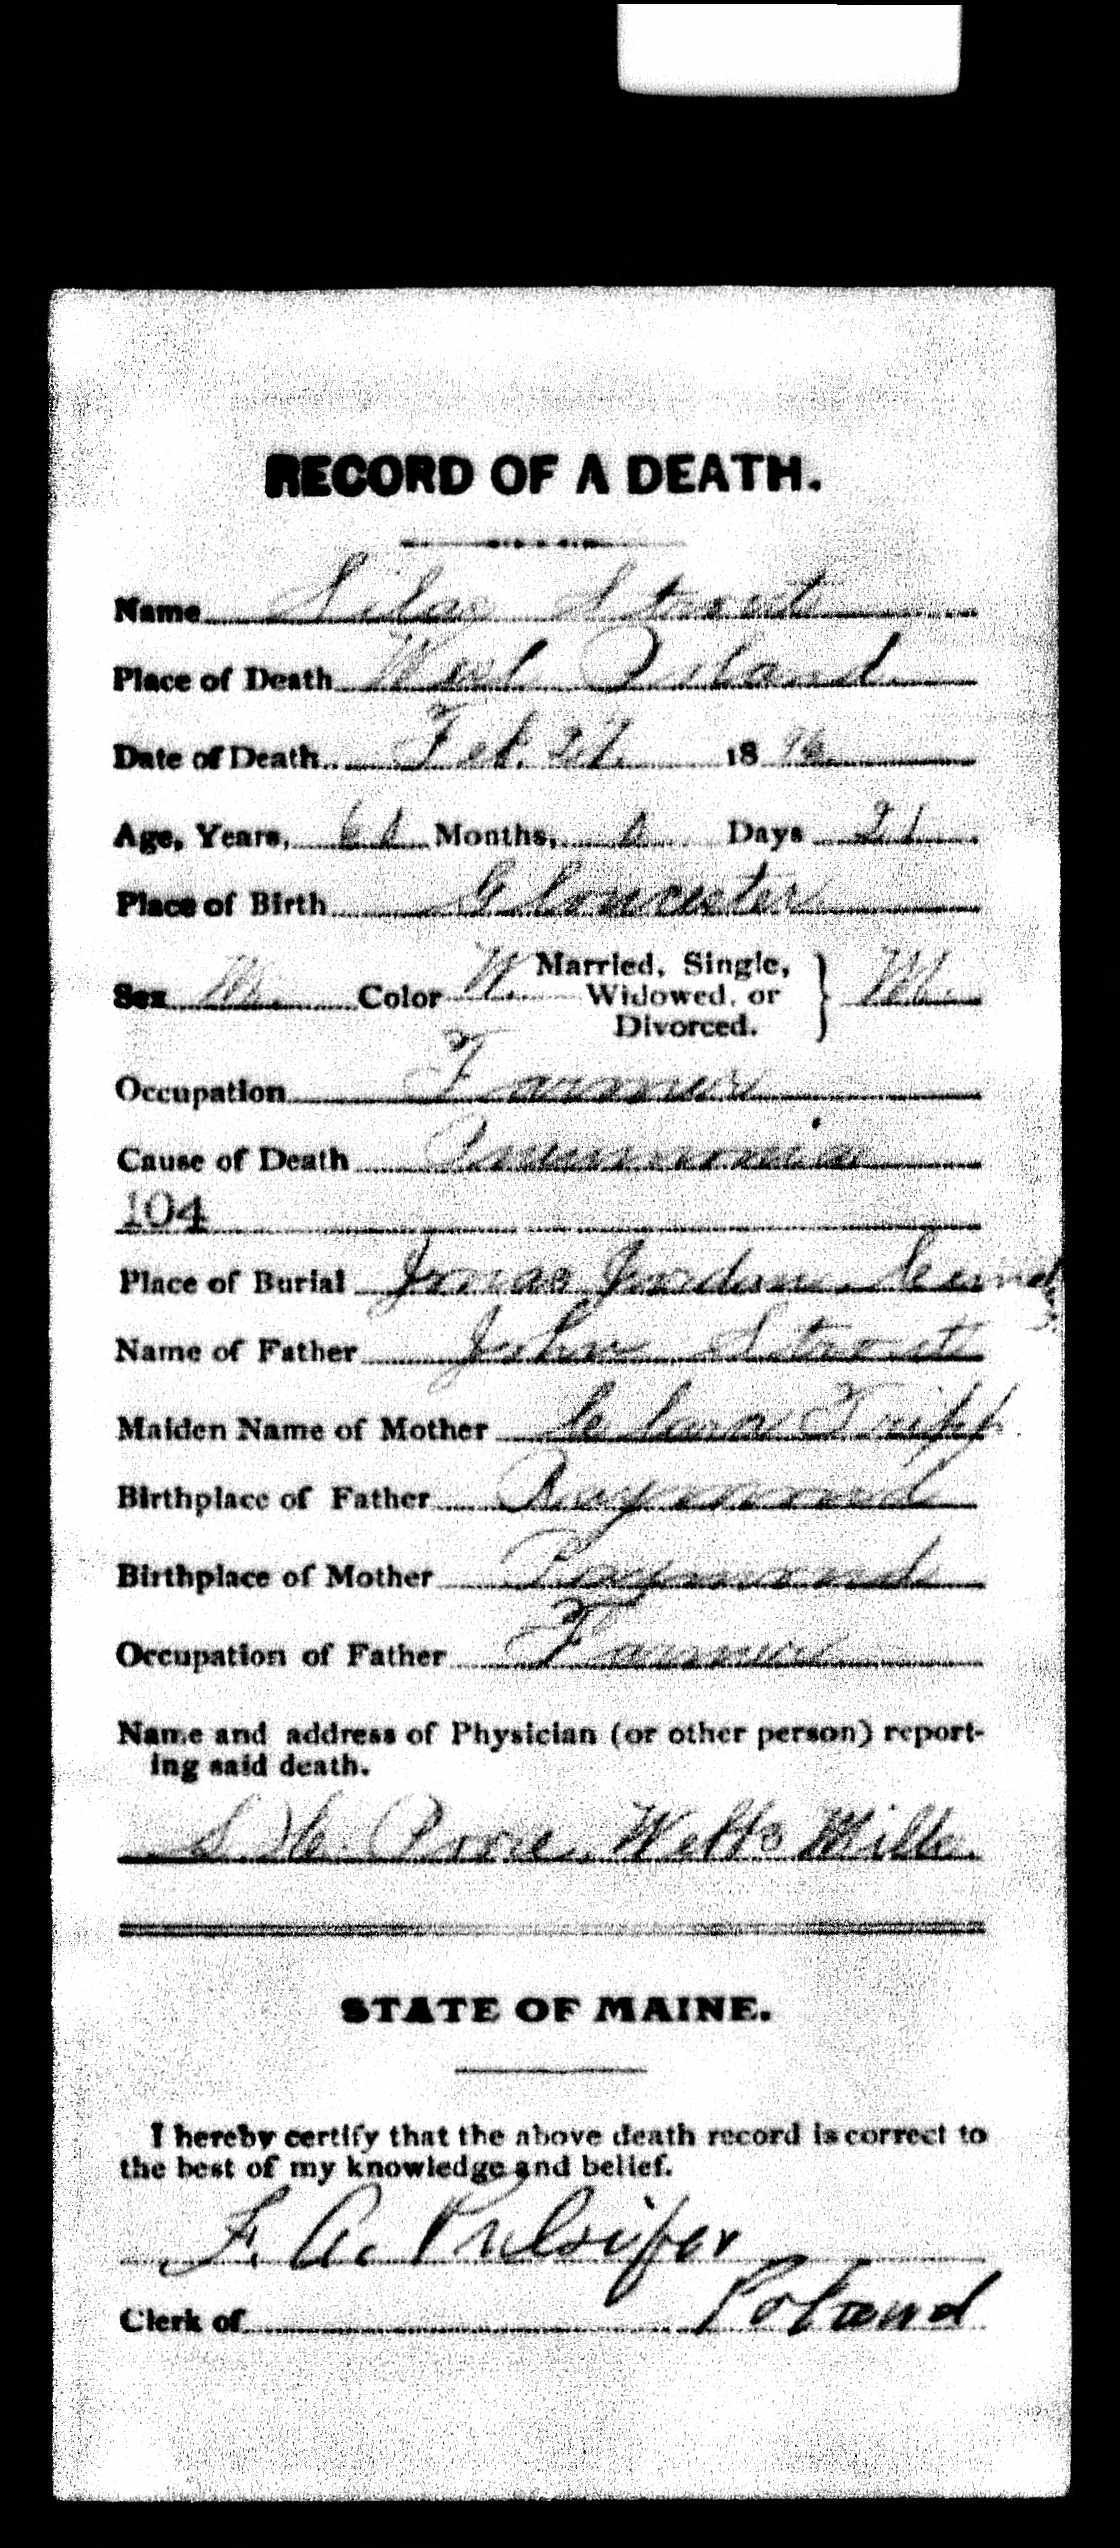 RECORD OF A DEATH.
Name Silas Strout
Place of Death West Poland
Date of Death Feb. 27. 1896
Age, Years, 61 Months, 1 Days 21
Place of Birth Gloucester
Sex M. Color W. Married, Single, Widowed, or Divorced. } M.
Occupation Farmer
Cause of Death Pneumonia
104
Place of Burial Jonas Jordan
Name of Father John Strout
Maiden Name of Mother Clara Tripp.
Birthplace of Father Raymond
Birthplace of Mother Raymond
Occupation of Father Farmer
Name and address of Physician (or other person) report-
ing said death.
Mills.
STATE OF MAINE.
I hereby certify that the above death record is correct to
the best of my knowledge and belief.
F. A. Pulsifer
Clerk of Poland